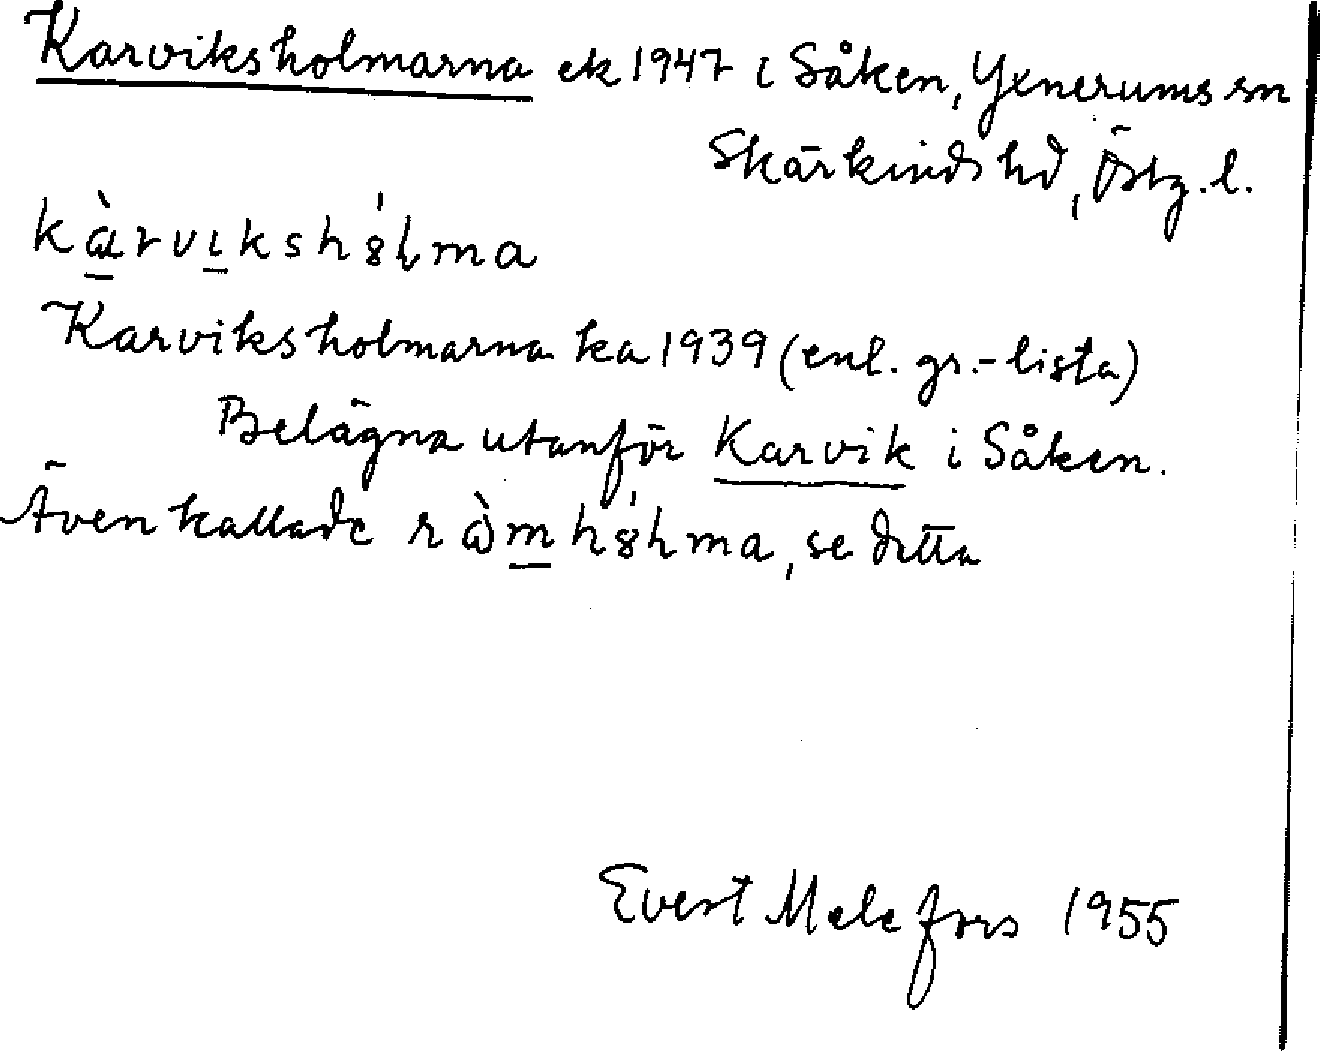 Karviksholmarna ek 1947 i Såken, Yxnerums sn
Skärkinds hd, Östg. l.
kàrvikshól̥ma
Karviksholmarna ka 1939 (enl. gr.-lista)
Belägna utanför Karvik i Såken.
Även kallade , se detta
Evert Melefors 1955